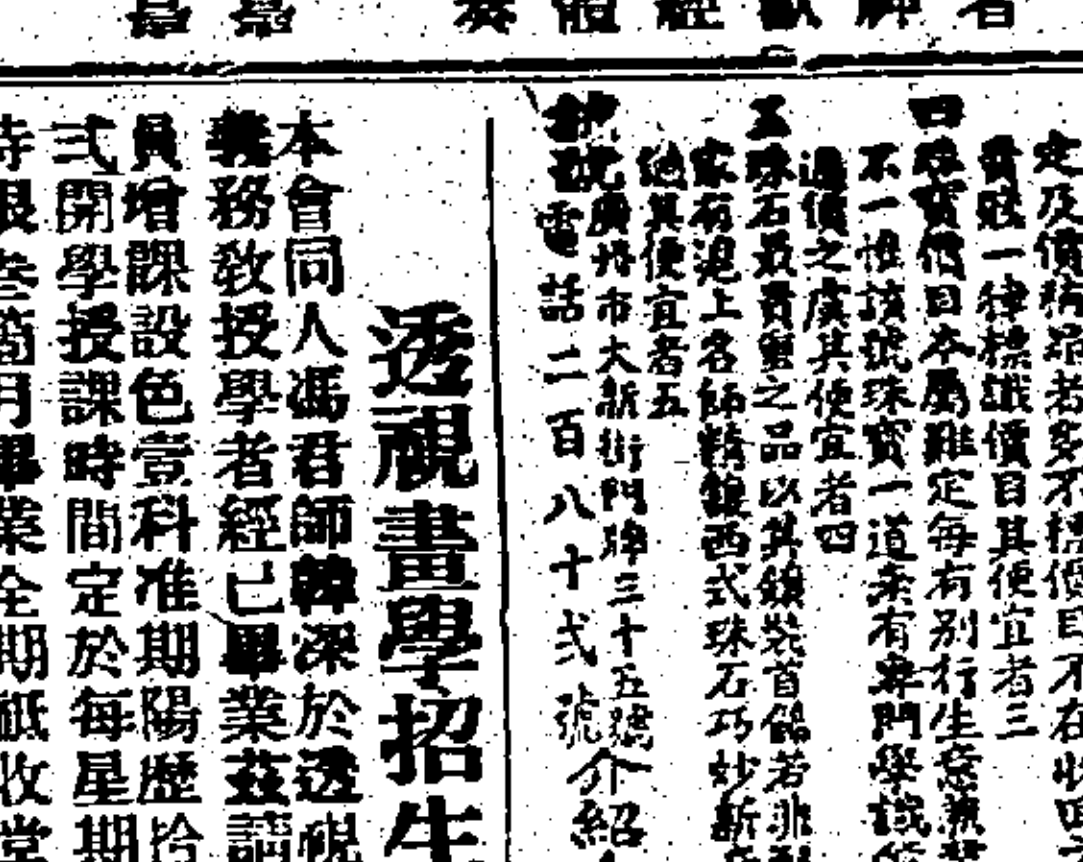 者
神
獻
經
體
奏
景
景
定及價
者多不標價目不在
貴賤一律標識價目其便宜者三
四
珠寶價目本屬難定每有別行生意兼
不一惟該號珠寶一道素有專門學識
過價之虞其便宜者四
五
珠石最貴重之品以其鑲裝首飾若非
家有滬上名師精鑲西式珠石巧妙新
其便宜者五
號廣州市大新街門牌三十五號介紹
電話二百八十弍號
透視畫學招生
本會同人馮君師韓深於透視
義務教授學者經已畢業茲請
員增課設色壹科准期陽歷拾
弍開學授課時間定於每星期
待限叁箇月畢業全期祗收堂